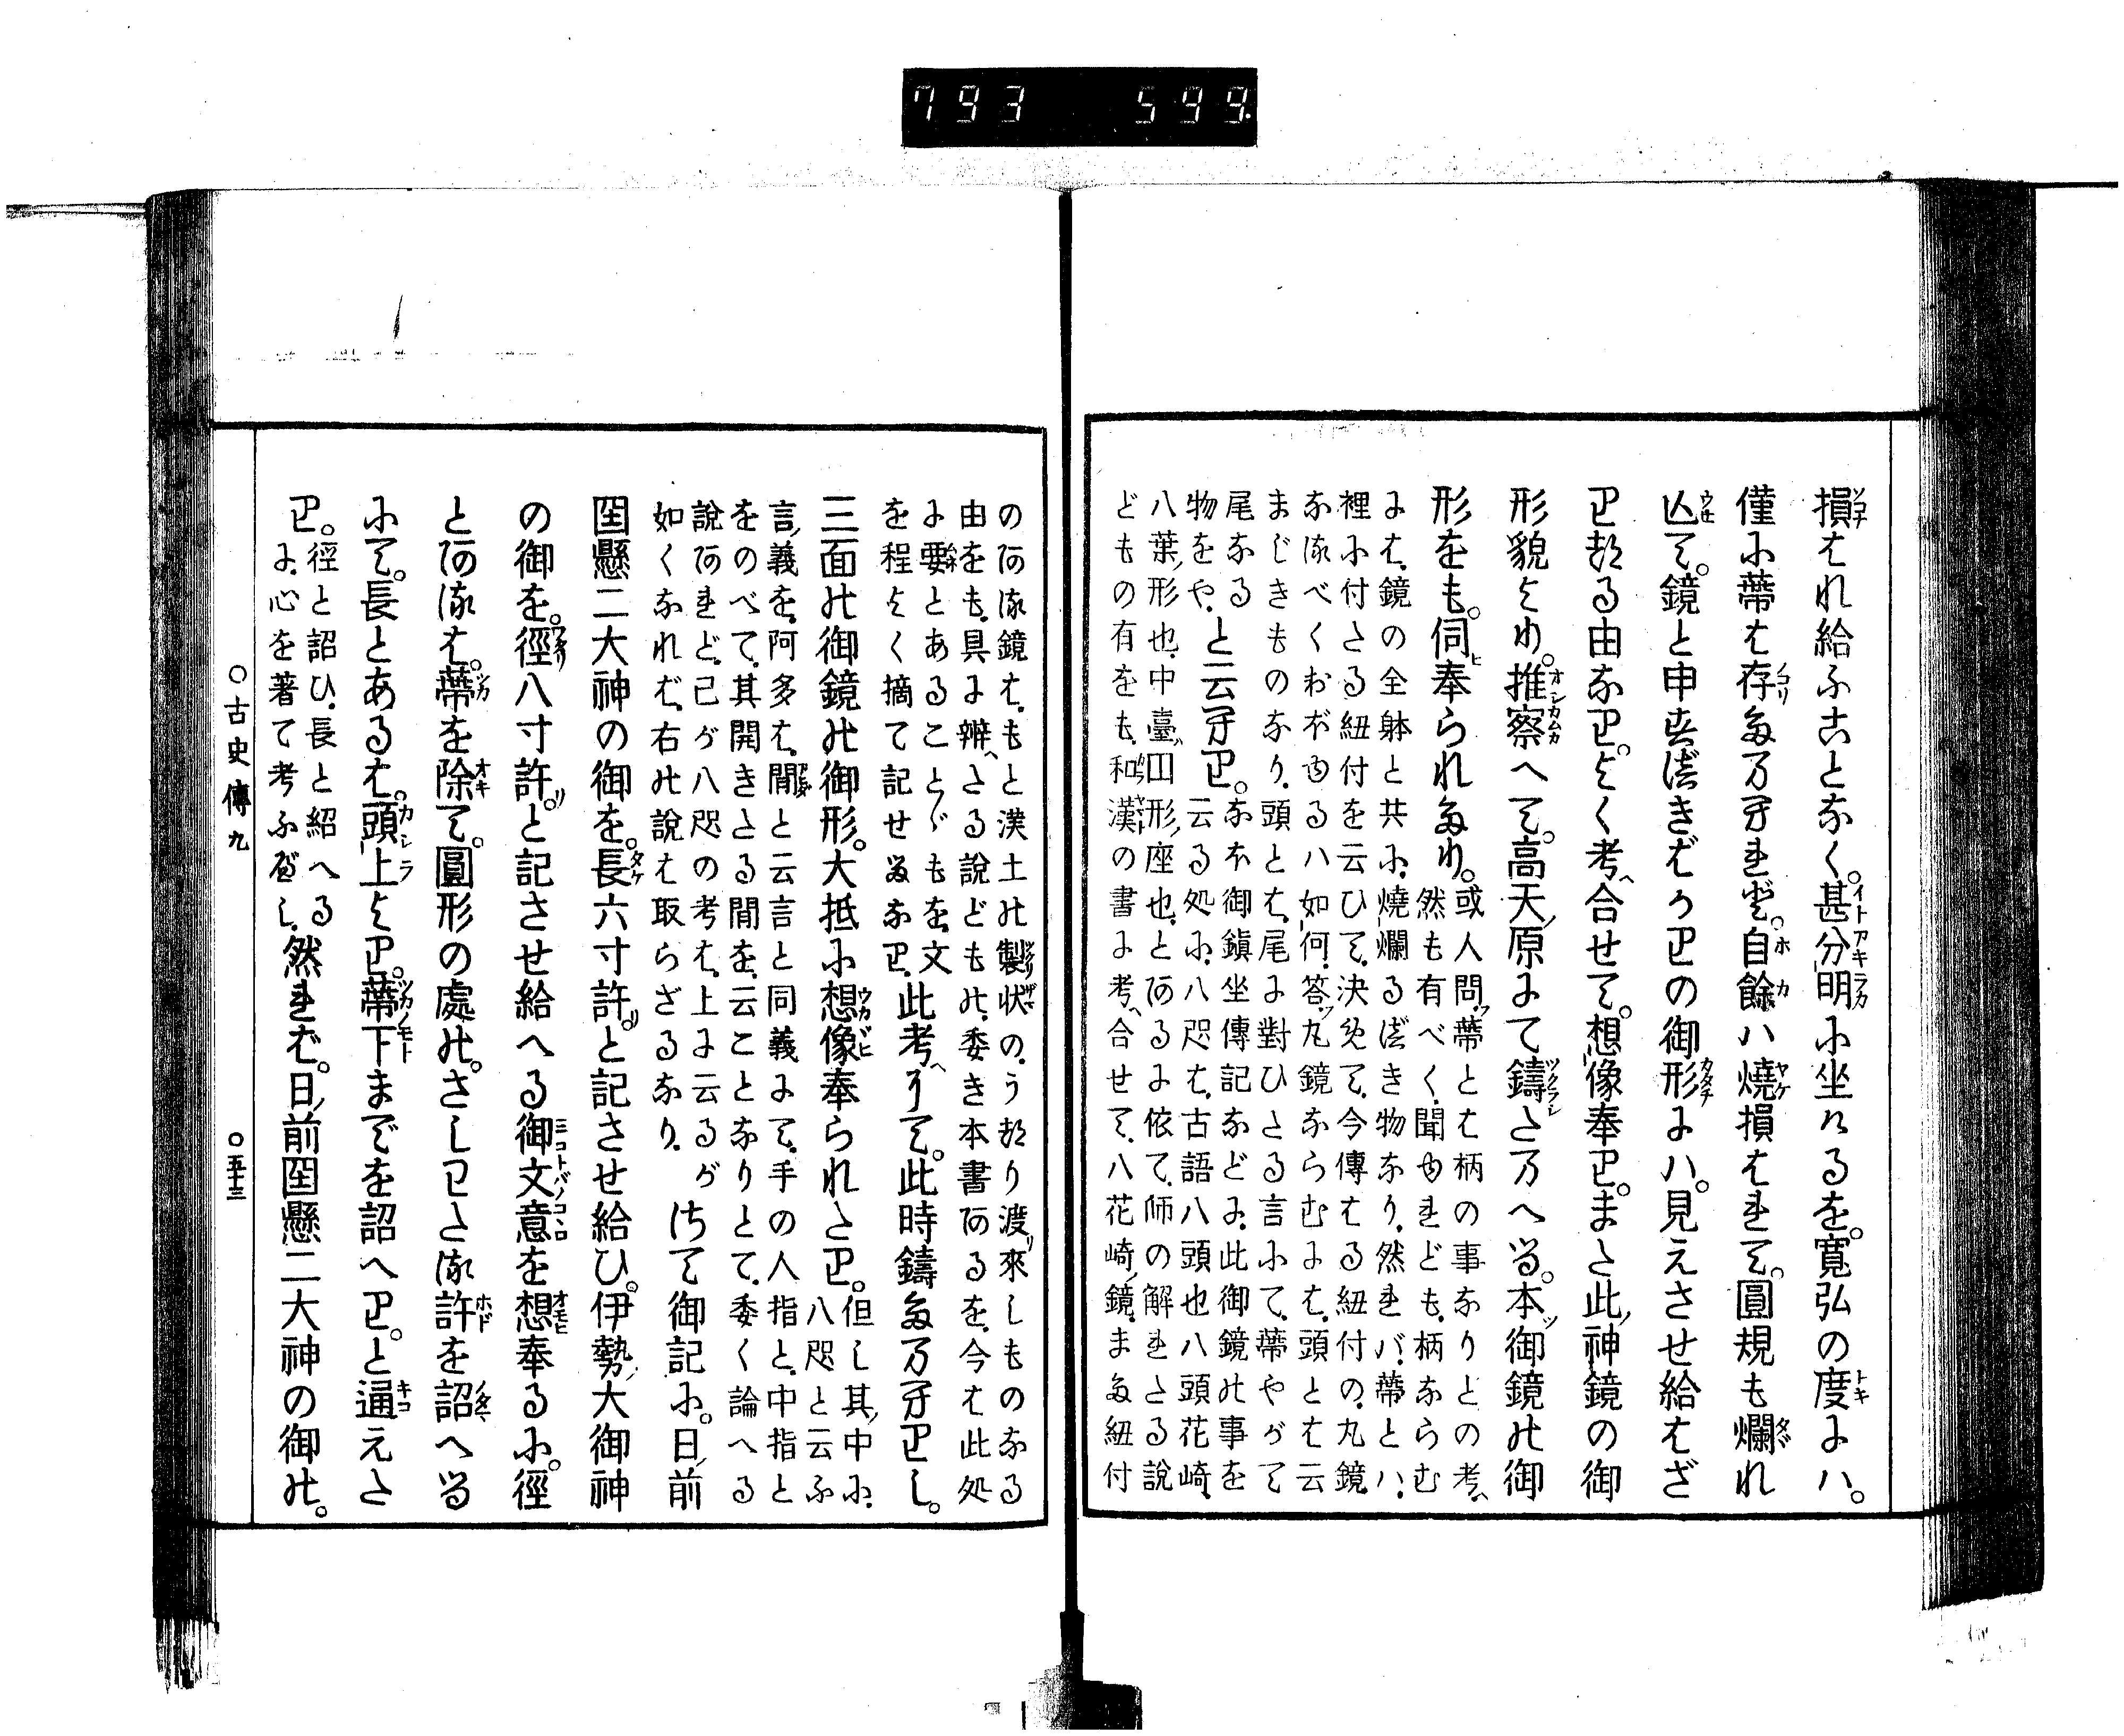 793 599.
損はれ給ふことなく。甚分明に坐けるを。寛弘の度には。
僅に蔕は存り給へれど。自餘は燒損はれて。圓規も爛れ
亡て。鏡と申すべきばかりの御形には。見えさせ給はざ
りける由なり。よく考へ合せて。想像奉り。また此ノ神鏡の御
形貌より。推察へて。高天ノ原にて鑄たまへる。本ツ御鏡の御
形をも。伺ヒ奉られたり。
或人問フ、蔕とは柄の事なりとの考へ、
然も有べく、聞ゆれども、柄ならむ
には、鏡の全躰と共に、燒爛るべき物なり、然れバ、蔕とハ、
裡に付たる紐付を云ひて、決めて、今傳はる紐付の、丸鏡
なるべくおぼゆるハ如何、答ッ丸鏡ならむには、頭とは云
まじきものなり、頭とは、尾に對ひたる言にて、蔕やがて
尾なる物をや、と云へり。
なほ御鎭坐傳記などに、此御鏡の事を
云る処に、八咫は、古語八頭也八頭花崎、
八葉ノ形也、中臺ノ圓形ノ座也、とあるに依て、師の解れたる説
どもの有をも、和漢の書に考へ合せて、八花崎ノ鏡、また紐付
のある鏡は、もと漢土の製状の、うつり渡リ來しものなる
由をも、具に辨へたる説どもの、委き本書あるを、今は此処
に要とあることゞもを、文を程よく摘て記せるなり、
此考へありて。此時鑄給へりし。
三面の御鏡の御形。大抵に想像奉られたり。
但し其ノ中に、
八咫と云ふ
言ノ義を、阿多は、開と云言と同義にて、手の人指と、中指と
をのべて、其開きたる間を、云ことなりとて、委く論へる
説あれど、己が八咫の考は、上に云るが
如くなれば、右の説は取らざるなり、
さて御記に。日ノ前
國懸二大神の御を。長六寸許リと記させ給ひ。伊勢ノ大御神
の御を。徑八寸許リと記させ給へる御文意を想奉るに。徑
とあるは。蔕を除て。圓形の處の。さしわたる許を詔へる
にて。長とあるは。頭上より。蔕下までを詔へり。と通えた
り。
徑と詔ひ、長と紹へる
に、心を著て考ふべし、
然れば。日ノ前國懸二大神の御の。
○古史傳九 ○五十三